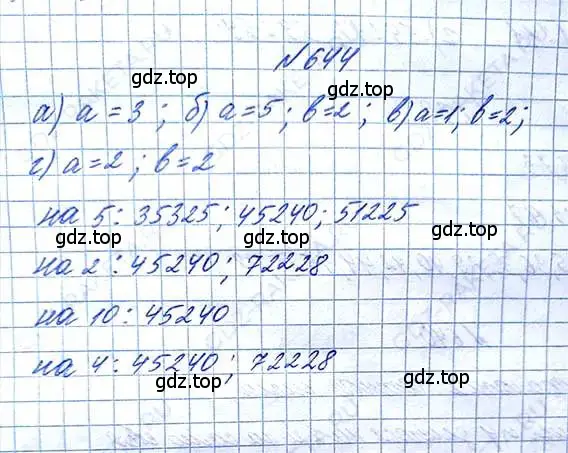 №644
gdz.top gdz.top
а) а = 3 ; б) а=5 ; в=2 ; в) а=1; в=2;
г) а=2 ; в=2
на 5: 35325; 45240; 51225
gdz.top gdz.top
на 2 : 45240; 72228
на 10: 45240
на 4: 45240; 72228
gdz.top gdz.top